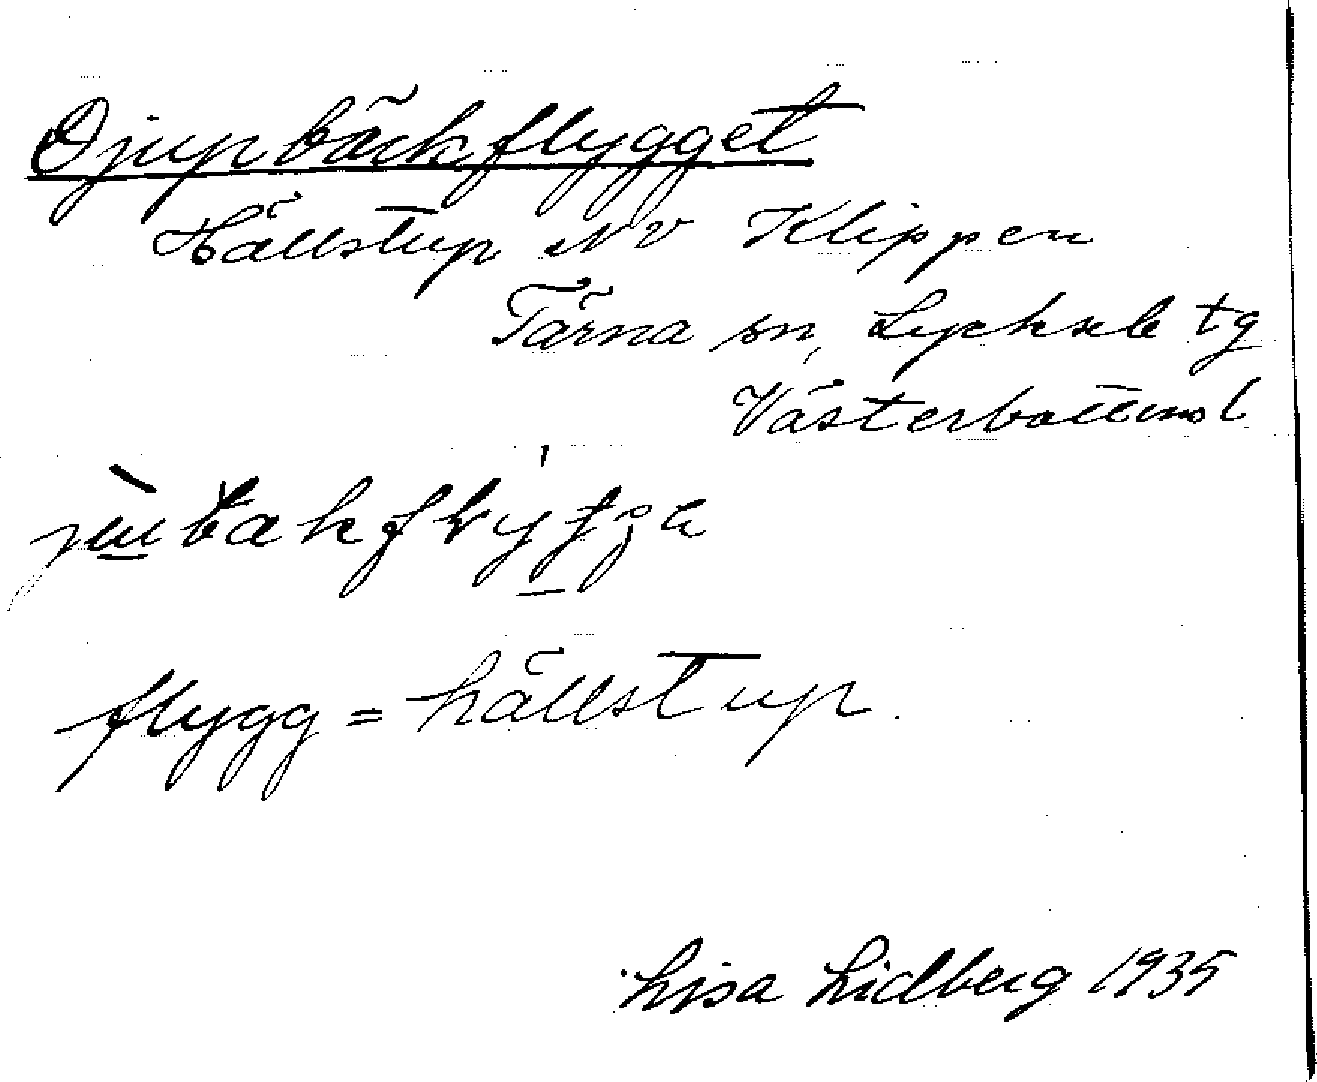 Djupbäckflygget
Hällstup NV Klippen
Tärna sn, Lycksele tg
Västerbottens l
flygg = hällstup.
Lisa Lidberg 1935